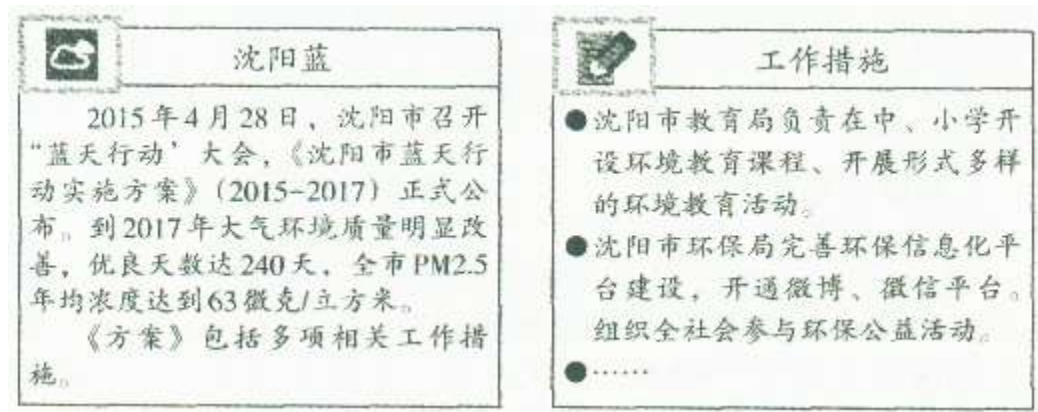 沈阳蓝
2015年4月28日，沈阳市召开
“蓝天行动’大会，《沈阳市蓝天行
动实施方案》（2015-2017）正式公
布。到2017年大气环境质量明显改
善，优良天数达240天，全市PM2.5
年均浓度达到63微克/立方米。
《方案》包括多项相关工作措
施。
工作措施
●沈阳市教育局负责在中、小学开
设环境教育课程、开展形式多样
的环境教育活动。
●沈阳市环保局完善环保信息化平
台建设，开通微博、微信平台。
组织全社会参与环保公益活动。
●……